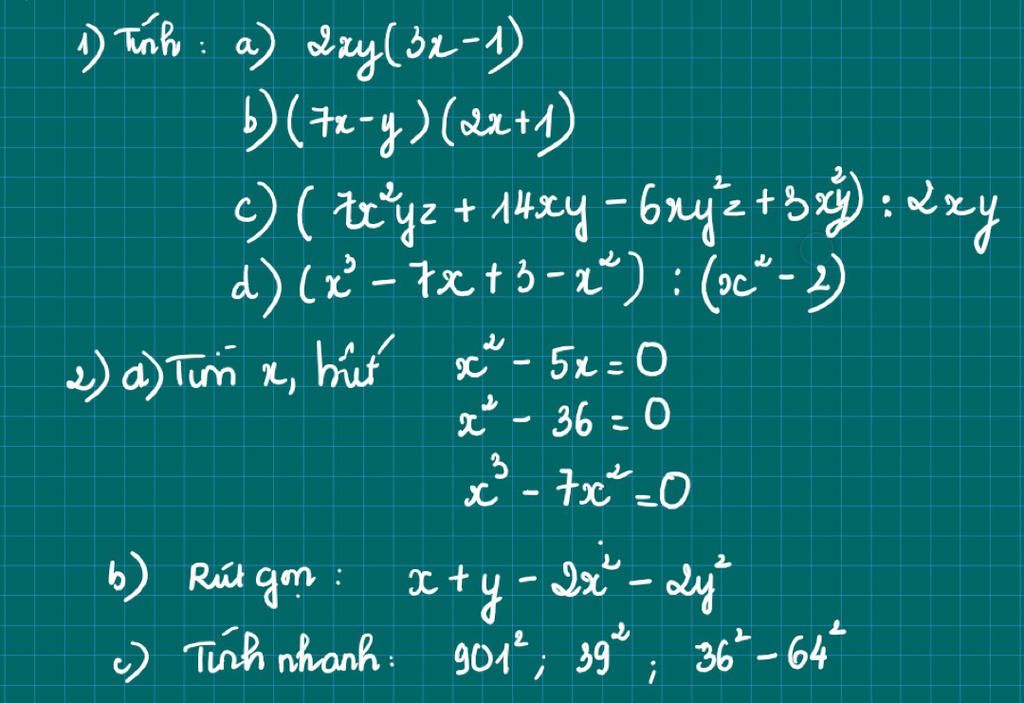 1) Tính : a) 2xy(3x-1)
b) (7x-y)(2x+1)
c) (7x²yz + 14xy - 6xy²z + 3xy²) : 2xy
d) (x³ - 7x + 3 - x²) : (x² - 2)
2) a) Tìm x, biết x² - 5x = 0
x² - 36 = 0
x³ - 7x² = 0
b) Rút gọn : x + y - 2x² - 2y²
c) Tính nhanh : 901² ; 39² ; 36² - 64²